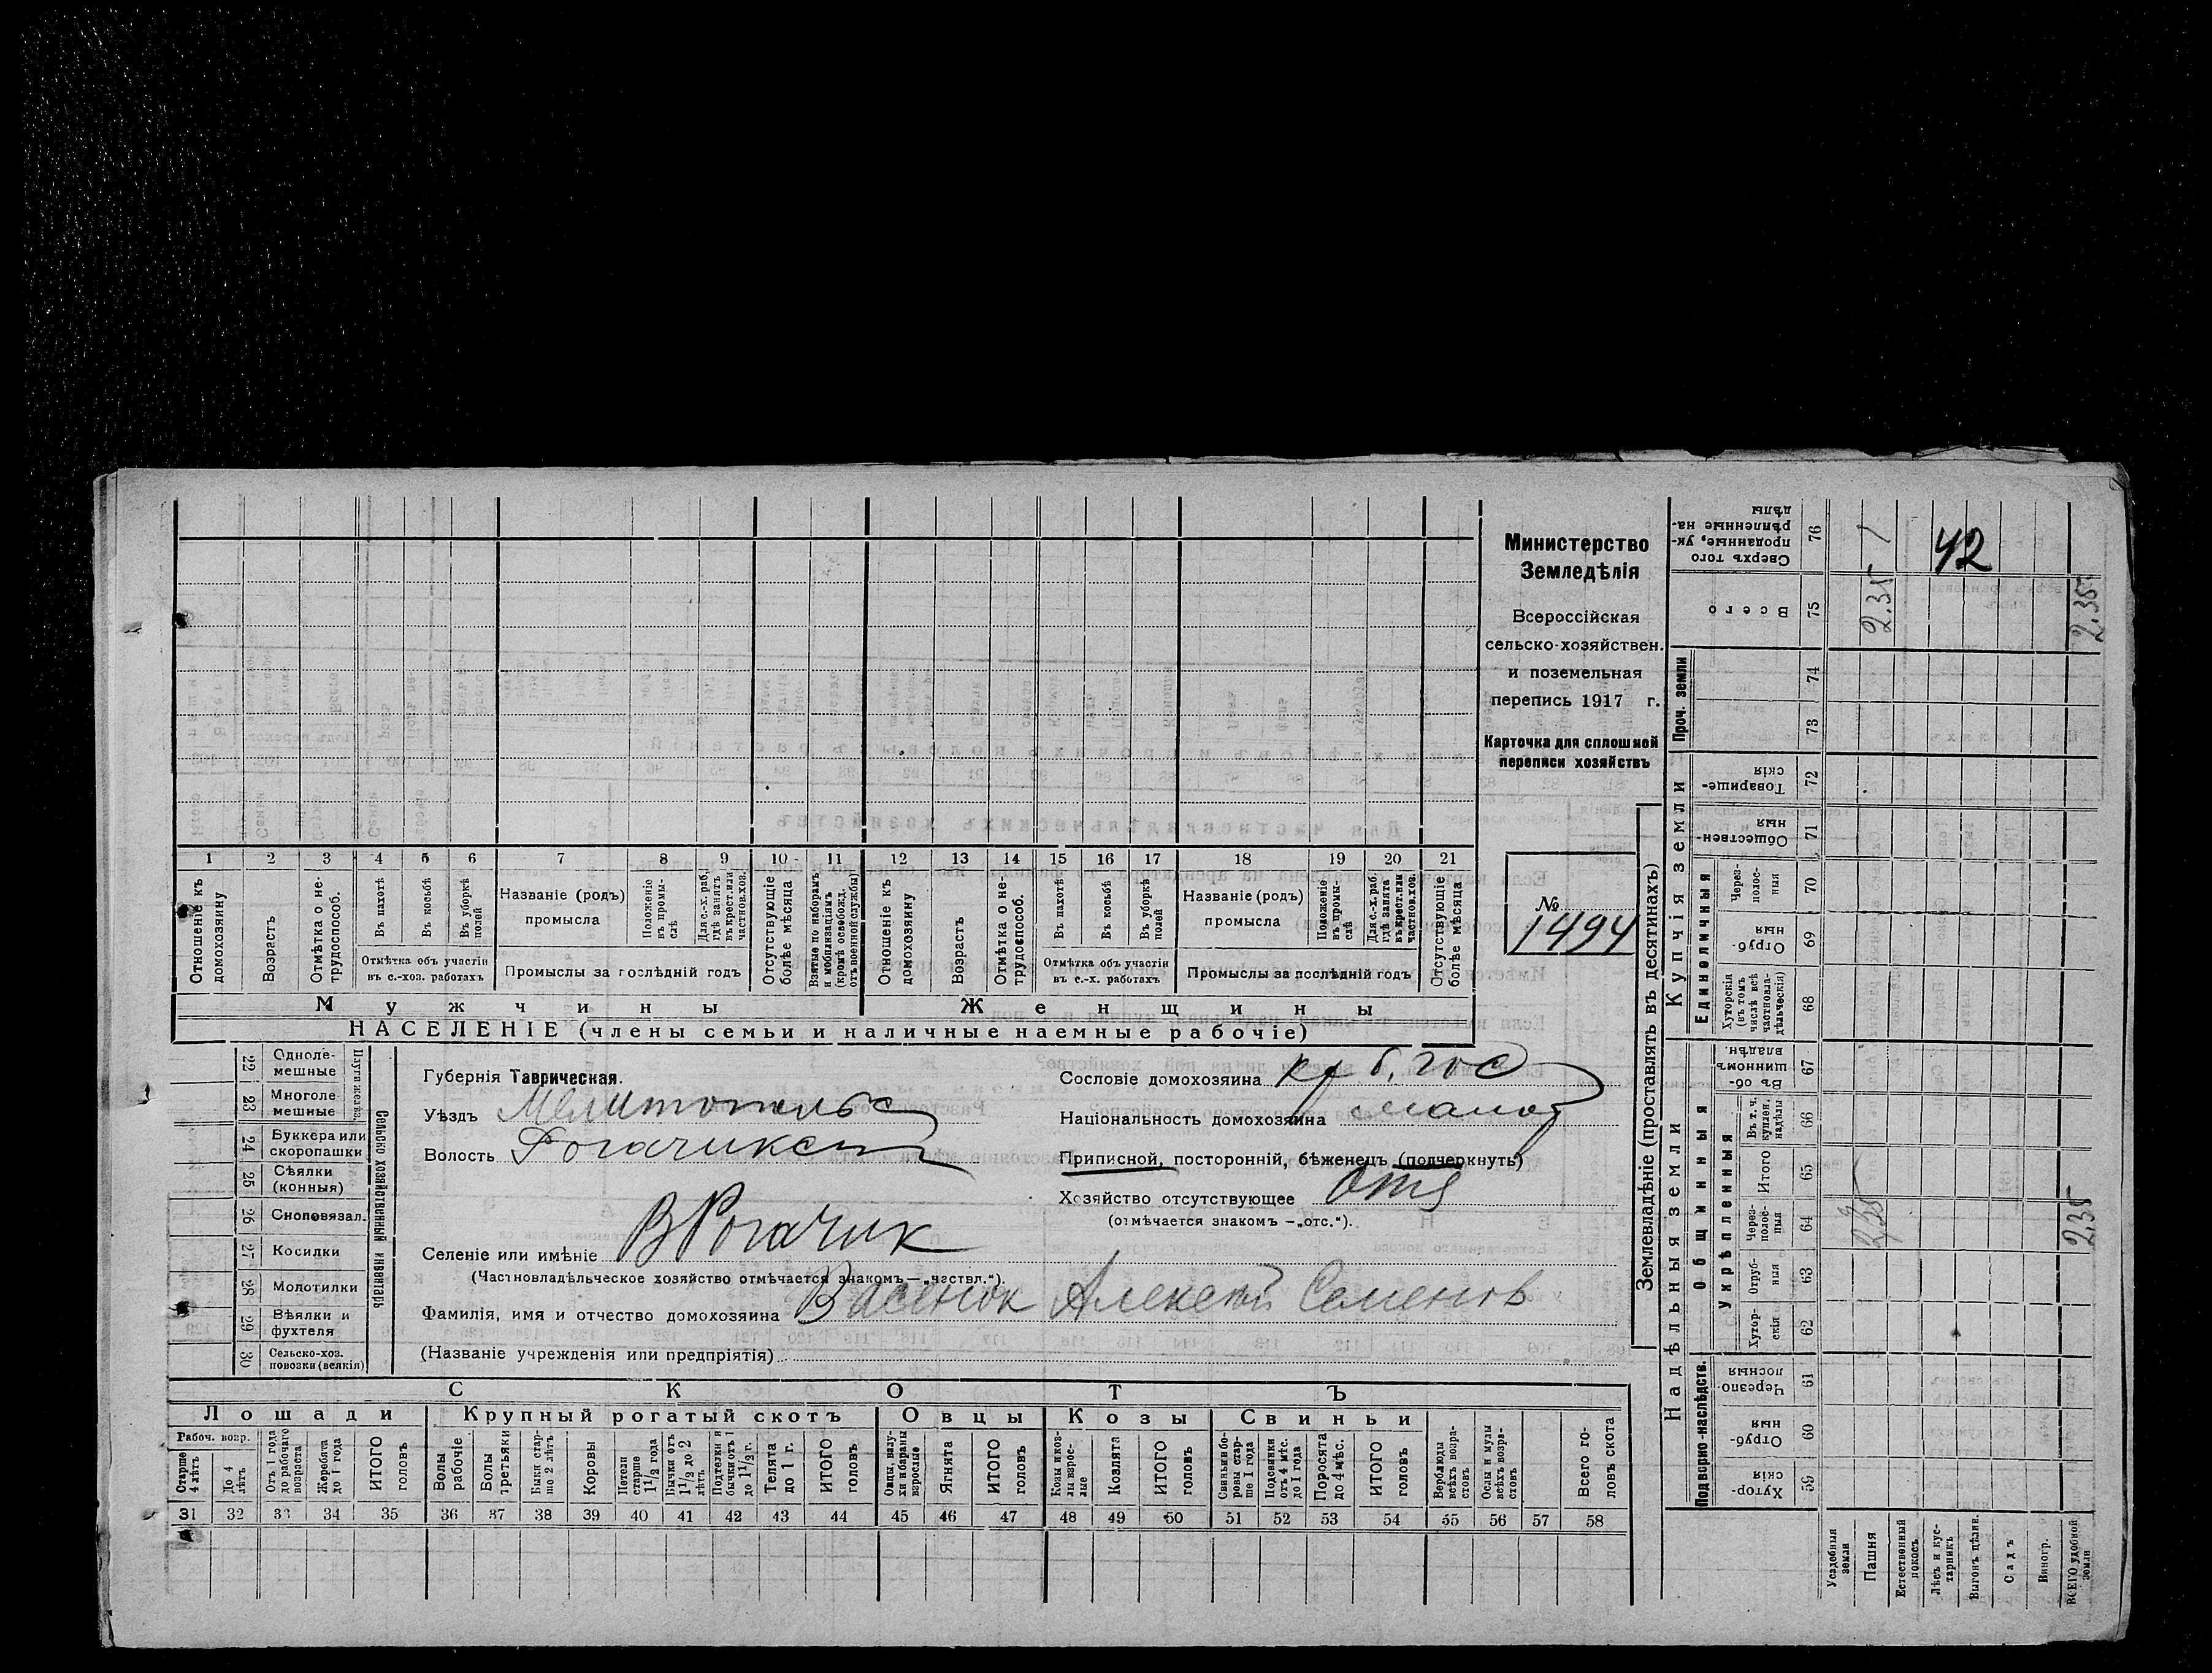 Министерство
Земледѣлія
Всероссійская
сельско-хозяйствен.
и поземельная
перепись 1917 г.
Карточка для сплошной
переписи хозяйствъ
№
1494
42
1 2 3 4 5 6 7 8 9 10 11 12 13 14 15 16 17 18 19 20 21
Отношеніе къ домохозяину
Возрастъ
Отмѣтка о нетрудоспособ.
Въ пахотѣ
Въ косьбѣ
Въ уборкѣ полей
Отмѣтка объ участіи
въ с.-хоз. работахъ
Названіе (родъ)
промысла
Положеніе въ промыслѣ
Для с.-х. раб., гдѣ занятъ въ крест. или частнов. хоз.
Промыслы за послѣдній годъ
Отсутствующіе болѣе мѣсяца
Взятые по наборамъ и мобилизаціямъ (кромѣ освобожд. отъ военной службы)
Отношеніе къ домохозяину
Возрастъ
Отмѣтка о нетрудоспособ.
Въ пахотѣ
Въ косьбѣ
Въ уборкѣ полей
Отмѣтка объ участіи
въ с.-х. работахъ
Названіе (родъ)
промысла
Положеніе въ промыслѣ
Для с.-х. раб. гдѣ занята въ крест. или частнов. хоз.
Промыслы за послѣдній годъ
Отсутствующія болѣе мѣсяца
Мужчины
Женщины
НАСЕЛЕНІЕ (члены семьи и наличные наемные рабочіе)
22 Одноле-
мешные
23 Многоле-
мешные
24 Буккера или
скоропашки
25 Сѣялки
(конныя)
26 Сноповязал.
27 Косилки
28 Молотилки
29 Вѣялки и
фухтеля
30 Сельско-хоз.
повозки (всякія)
Сельско хозяйственный инвентарь
Губернія Таврическая.
Уѣздъ Мелитопольс
Волость Рогачикск
Селеніе или имѣніе В Рогачик
(Частновладѣльческое хозяйство отмѣчается знакомъ—„частвл.“).
Фамилія, имя и отчество домохозяина Васенюк Алексей Семенов
(Названіе учрежденія или предпріятія)
Сословіе домохозяина кр б. гос
Національность домохозяина малор
Приписной, посторонній, бѣженецъ (подчеркнуть)
Хозяйство отсутствующее
(отмѣчается знакомъ —„отс.“).
СКОТЪ
Лошади
Крупный рогатый скотъ
Овцы
Козы
Свиньи
Рабоч. возр.
Старше 4 лѣтъ
До 4 лѣтъ
Отъ 1 года до рабочаго возраста
Жеребята до 1 года
ИТОГО головъ
Волы рабочіе
Волы третьяки
Быки старше 2 лѣтъ
Коровы
Нетели старше 1 1/2 года
Бычки отъ 1 1/2 до 2 лѣтъ
Подтелки и бычки отъ 1 до 1 1/2 г.
Телята до 1 г.
ИТОГО головъ
Овцы, валухи и бараны взрослые
Ягнята
ИТОГО головъ
Козы и козлы взрослые
Козлята
ИТОГО головъ
Свиньи и боровы старше 1 года
Подсвинки отъ 4 мѣс. до 1 года
Поросята до 4 мѣс.
ИТОГО головъ
Верблюды всѣхъ возрастовъ
Ослы и мулы всѣхъ возрастовъ
Всего головъ скота
31 32 33 34 35 36 37 38 39 40 41 42 43 44 45 46 47 48 49 50 51 52 53 54 55 56 57 58
Землевладѣніе (проставлять въ десятинахъ)
Надѣльныя земли
Купчія земли
Проч. земли
Подворно-наслѣдств.
Общинныя
Укрѣпленныя
Единоличныя
Хуторскія 59
Отрубныя 60
Черезполосныя 61
Хуторскія 62
Отрубныя 63
Черезполосныя 64
Итого 65
Въ т. ч. куплен. надѣлы 66
Въ общинномъ владѣн. 67
Хуторскія (въ томъ числѣ всѣ частновладѣльческія) 68
Отрубныя 69
Черезполосныя 70
Общественныя 71
Товарищескія 72
73
74
Всего 75
Сверхъ того проданные, укрѣпленные надѣлы 76
2.35
2.35
2.35
2.35
Усадебныя земли
Пашня
Естественный покосъ
Лѣсъ и кустарникъ
Выгонъ цѣлин.
Садъ
Виногр.
ВСЕГО удобной земли